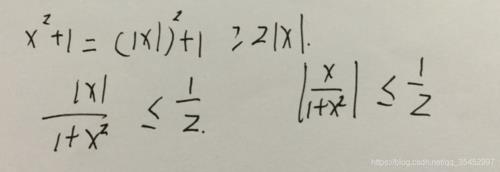 x²+1 = (|x|)²+1 ≥ 2|x|.
|x|/(1+x²) ≤ 1/2. |x/(1+x²)| ≤ 1/2
https://blog.csdn.net/qq_35452997